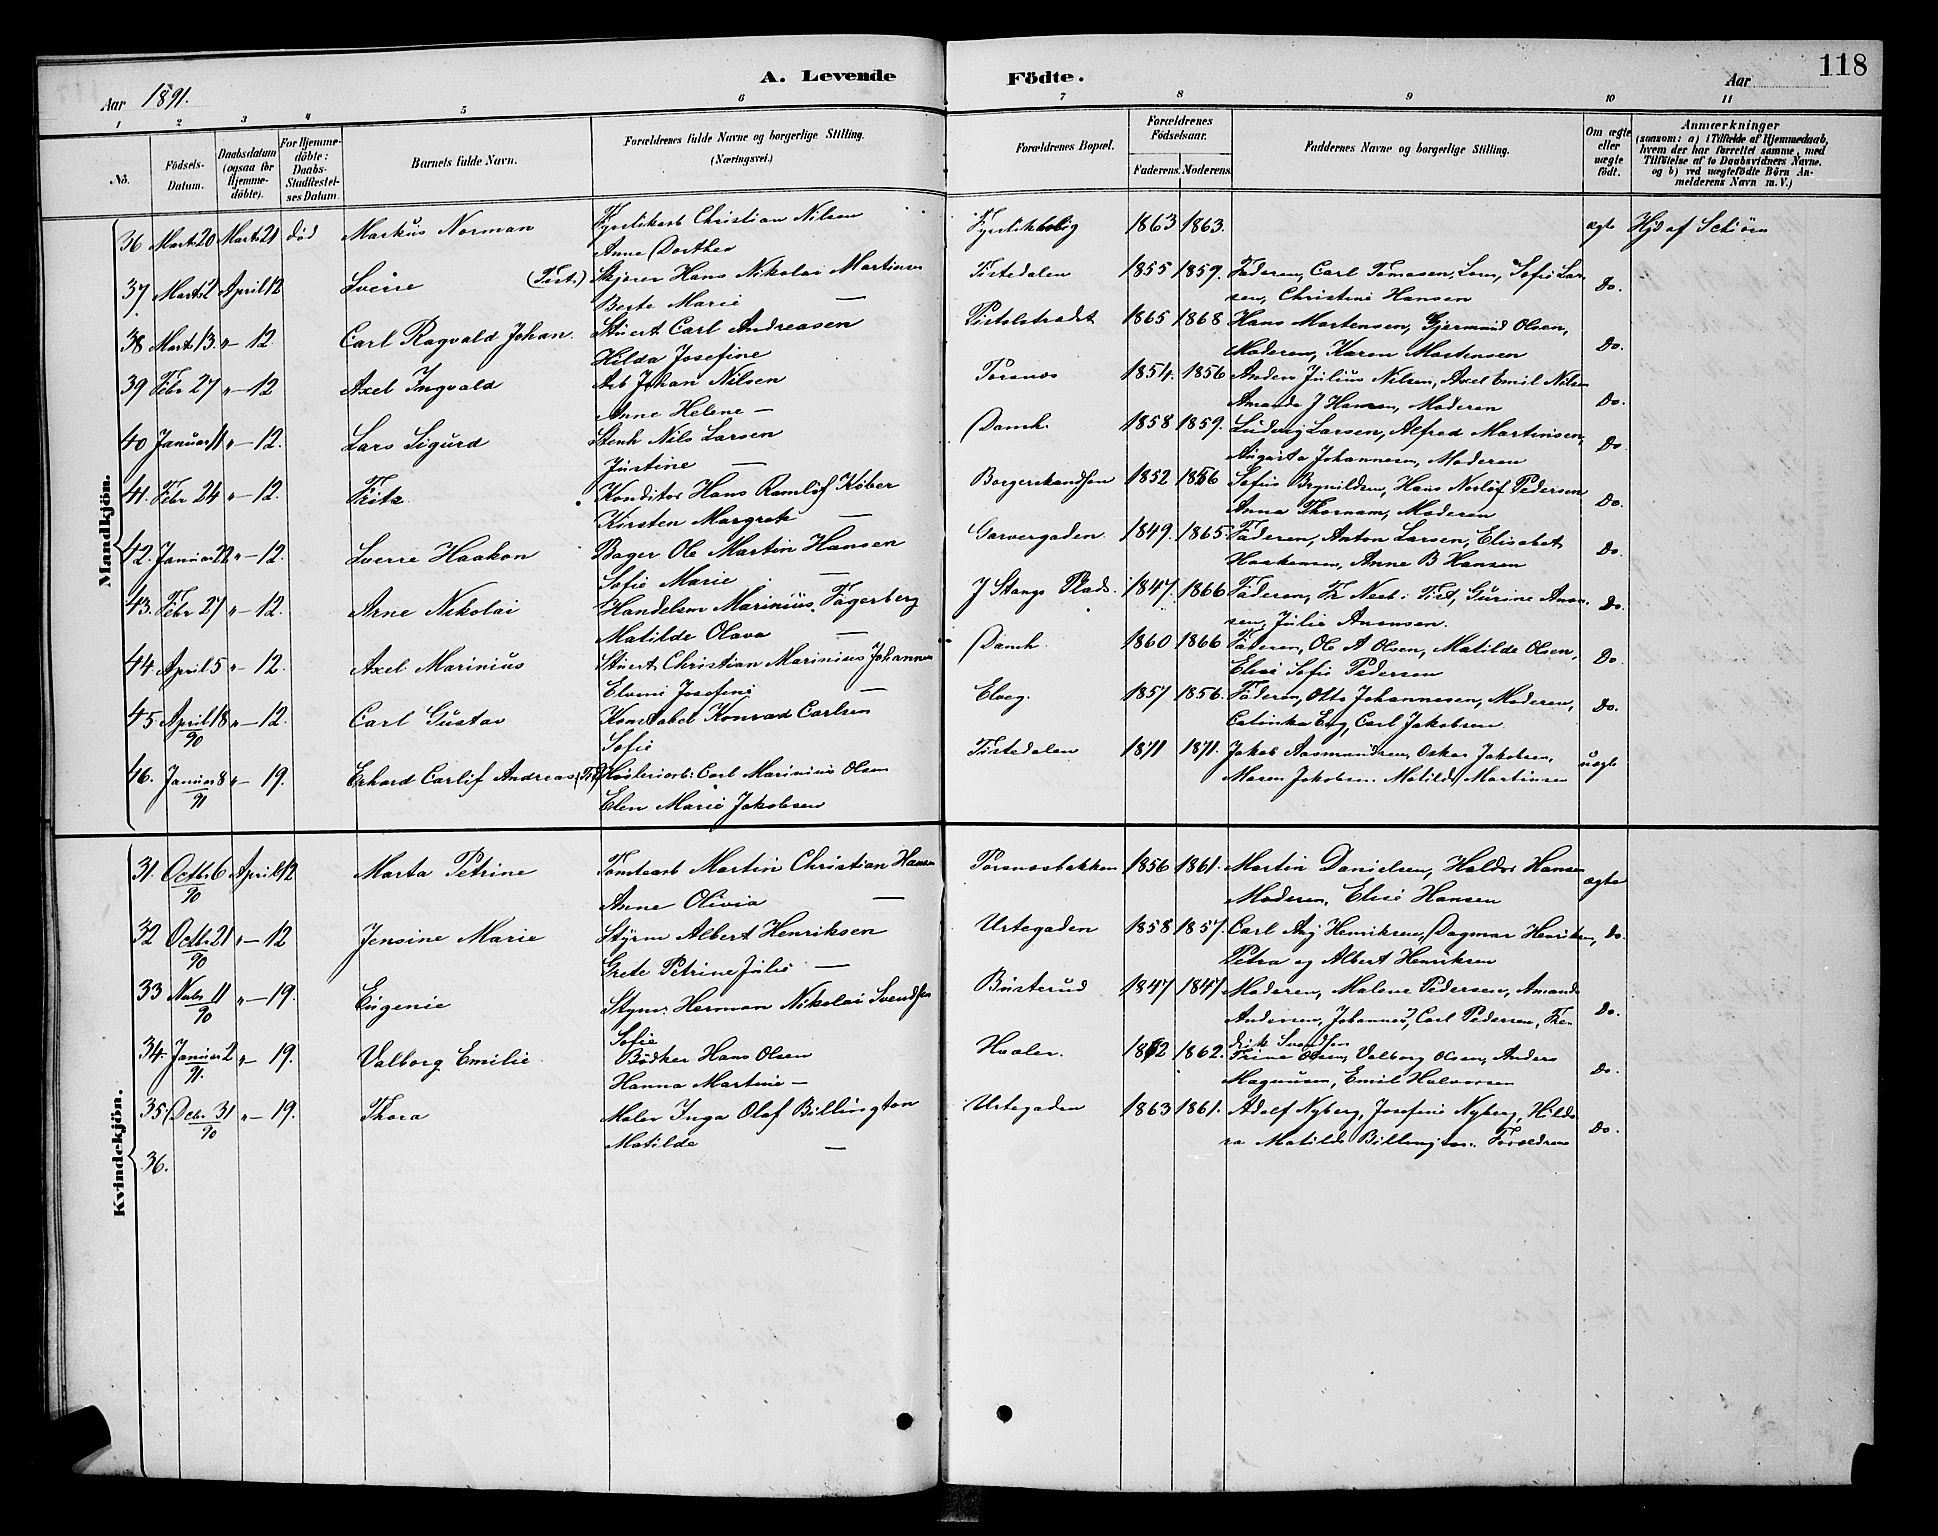 118
A. Levende Födte.
Aar 1891. Aar
1 2 3 4 5 6 7 8 9 10 11
No. Födsels-Datum. Daabsdatum (ogsaa for Hjemme-döbte). For Hjemme-döbte: Daabs-Stadfæstelses Datum. Barnets fulde Navn. Forældrenes fulde Navne og borgerlige Stilling. (Næringsvei.) Forældrenes Bopæl. Forældrenes Födselsaar. Faderens. Moderens. Faddernes Navne og borgerlige Stilling. Om ægte eller uægte födt. Anmærkninger (saasom: a) i Tilfælde af Hjemmedaab, hvem der har forrettet samme, med Tilföielse af to Daabsvidners Navne, og b) ved uægtefödte Börn Anmelderens Navn m. V.)
Mandkjön.
36 Marts 20 Marts 21 död Markus Norman Fyrstikarb Christian Nilsen 1863 1863. ægte Hjd af Schiörn
Anne Dorthea
37. Marts 2 April 12 Sverre (Tist.) Skjörer Hans Nikolai Martinsen Tistedalen 1855 1859. Faderen, Carl Tomasen, Lovise, Sofie Lar- Do.
Berte Marie — sen, Christine Hansen
38 Marts 13. " - 12 Carl Ragvald Johan. Stuert Carl Andreasen Pistolstrædt 1865 1868 Hans Martensen, Gjermund Olsen, Do.
Hilda Josefine Moderen, Karen Martensen
39 Febr 27 " - 12 Axel Ingvald Arb Johan Nilsen Torsnæs 1854. 1856 Anders Julius Nilsen, Axel Emil Nilsen Do.
Anne Helene — Amanda J Hansen, Moderen
40 Januar 11 " - 12. Lars Sigurd Stenh Nils Larsen Damh. 1858 1859. Ludvig Larsen, Alfred Martinsen, Do
Justine — Augusta Johannesen, Moderen
41. Febr 24 " - 12. Fritz Konditor Hans Ramlöf Köber Borgerskandsen 1852 1856 Sofus Brynildsen, Hans Norlöf Pedersen Do.
Kirsten Margrete — Anna Thornam, Moderen
42. Januar 22 " - 12. Sverre Haakon Bager Ole Martin Hansen Garvergaden 1849. 1865 Faderen, Anton Larsen, Elisabet Do
Sofie Marie — Haakensen, Anne B Hansen
43. Febr 27 " - 12. Arne Nikolai Handelsm Marinius Fagerberg J Stangs Plads. 1847. 1866 Faderen, Fr Neeb i Tist, Gurine Anon- Do
Matilde Olava — sen, Julie Anonsen.
44 April 5 " - 12. Axel Marinius Stuert Christian Marinius Johannesen Damh. 1860 1866 Faderen, Ole A Olsen, Matilde Olsen, Do.
Elvine Josefine — Elise Sofie Pedersen
45 April 18/90 " - 12. Carl Gustav Konstabel Konrad Carlsen Elveg. 1857 1856. Faderen, Otto Johannesen, Moderen, Do.
Sofie — Catinka Eng, Carl Jakobsen.
46. Januar 8/91 " - 19. Erhard Carlif Andreas (Tist) Hövleriarb. Carl Marinius Olsen Tistedalen 1871 1871. Jakob Aasmundsen, Oskar Jakobsen, uægte
Elen Marie Jakobsen Maren Jakobsen. Matilde Martinsen
Kvindekjön.
31. Octb. 6/90 April 12 Marta Petrine Tomtearb Martin Christian Hansen Torsnæsbakken 1856 1861. Martin Danielsen, Haldor Hansen ægte
Anne Olivia — Moderen, Elise Hansen
32 Octb. 21/90 " - 12 Jensine Marie Styrm Albert Henriksen Urtegaden 1858 1857. Carl Aug Henriksen, Dagmar Henriksen, Do.
Grete Petrine Julie — Petra og Albert Henriksen
33 Novbr. 11/90 " - 19. Eugenie Styrm. Herman Nikolai Svendsen Busterud 1847 1847 Moderen, Malene Pedersen, Amanda Do.
Sofie Andersen, Johannes, Carl Pedersen, Fre-
drik Svendsen
34. Januar 2/91. " - 19. Valborg Emilie Bödker Hans Olsen Hvaler. 1862 1862. Trine Olsen, Valborg Olsen, Anders Do.
Hanna Martine — Magnusen, Emil Halvorsen
35. Decbr. 31/90 " - 19. Thora Maler Inga Olaf Billington Urtegaden 1863 1861. Adolf Nyberg, Josefine Nyberg, Hildo- Do.
Matilde — ra Matilde Billington. Forældrene
36.